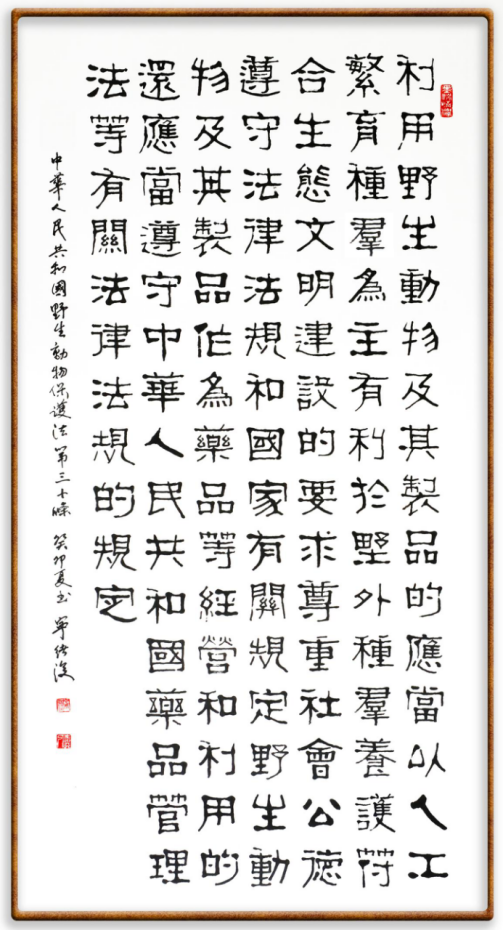 利用野生動物及其製品的應當以人工
繁育種羣為主有利於野外種羣養護符
合生態文明建設的要求尊重社會公德
遵守法律法規和國家有關規定野生動
物及其製品作為藥品等經營和利用的
還應當遵守中華人民共和國藥品管理
法等有關法律法規的規定
中華人民共和國野生動物保護法第三十條 癸卯夏書 寧